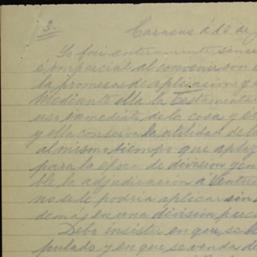 3.
Caracas á 15 de
Yo fuí enteramente
é imparcial al convenir con
la promesa de aplicacion y
Mediante ella la testamentaría
uso inmediato de la cosa y
y ella conserva la utilidad de
al mismo tiempo que
para la época de division y
ble la adjudicacion á Ventura
no se le podria aplicar sin
demás en una division
Debo insistir en que se
pulado y en que se venda